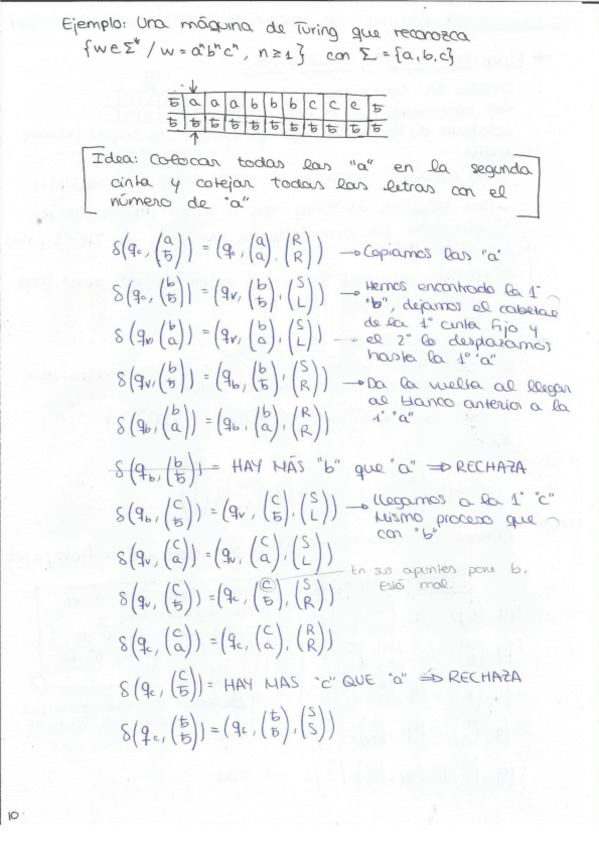 Ejemplo: Una máquina de Turing que reconozca
{w∈Σ* / w = aⁿbⁿcⁿ, n≥1} con Σ = {a,b,c}
ƀ a a a b b b c c c ƀ
ƀ ƀ ƀ ƀ ƀ ƀ ƀ ƀ ƀ ƀ ƀ
Idea: Colocar todas las "a" en la segunda
cinta y cotejar todas las letras con el
número de "a"
δ(q₀, (a ƀ)) = (q₀, (a a), (R R)) → Copiamos las "a"
δ(q₀, (b ƀ)) = (qᵥ, (b ƀ), (S L)) → Hemos encontrado la 1ª
"b", dejamos el cabezal
δ(qᵥ, (b a)) = (qᵥ, (b a), (S L)) de la 1ª cinta fijo y
el 2º lo desplazamos
hasta la 1ª "a"
δ(qᵥ, (b ƀ)) = (q_b, (b ƀ), (S R)) → Da la vuelta al llegar
al blanco anterior a la
1ª "a"
δ(q_b, (b a)) = (q_b, (b a), (R R))
δ(q_b, (b ƀ)) = HAY MÁS "b" que "a" ⇒ RECHAZA
δ(q_b, (c ƀ)) = (qᵥ, (c ƀ), (S L)) → Llegamos a la 1ª "c"
Mismo proceso que
con "b"
δ(qᵥ, (c a)) = (qᵥ, (c a), (S L))
En sus apuntes pone b.
Está mal.
δ(qᵥ, (c ƀ)) = (q_c, (c ƀ), (S R))
δ(q_c, (c a)) = (q_c, (c a), (R R))
δ(q_c, (c ƀ)) = HAY MAS "c" QUE "a" ⇒ RECHAZA
δ(q_c, (ƀ ƀ)) = (q_c, (ƀ ƀ), (S S))
10